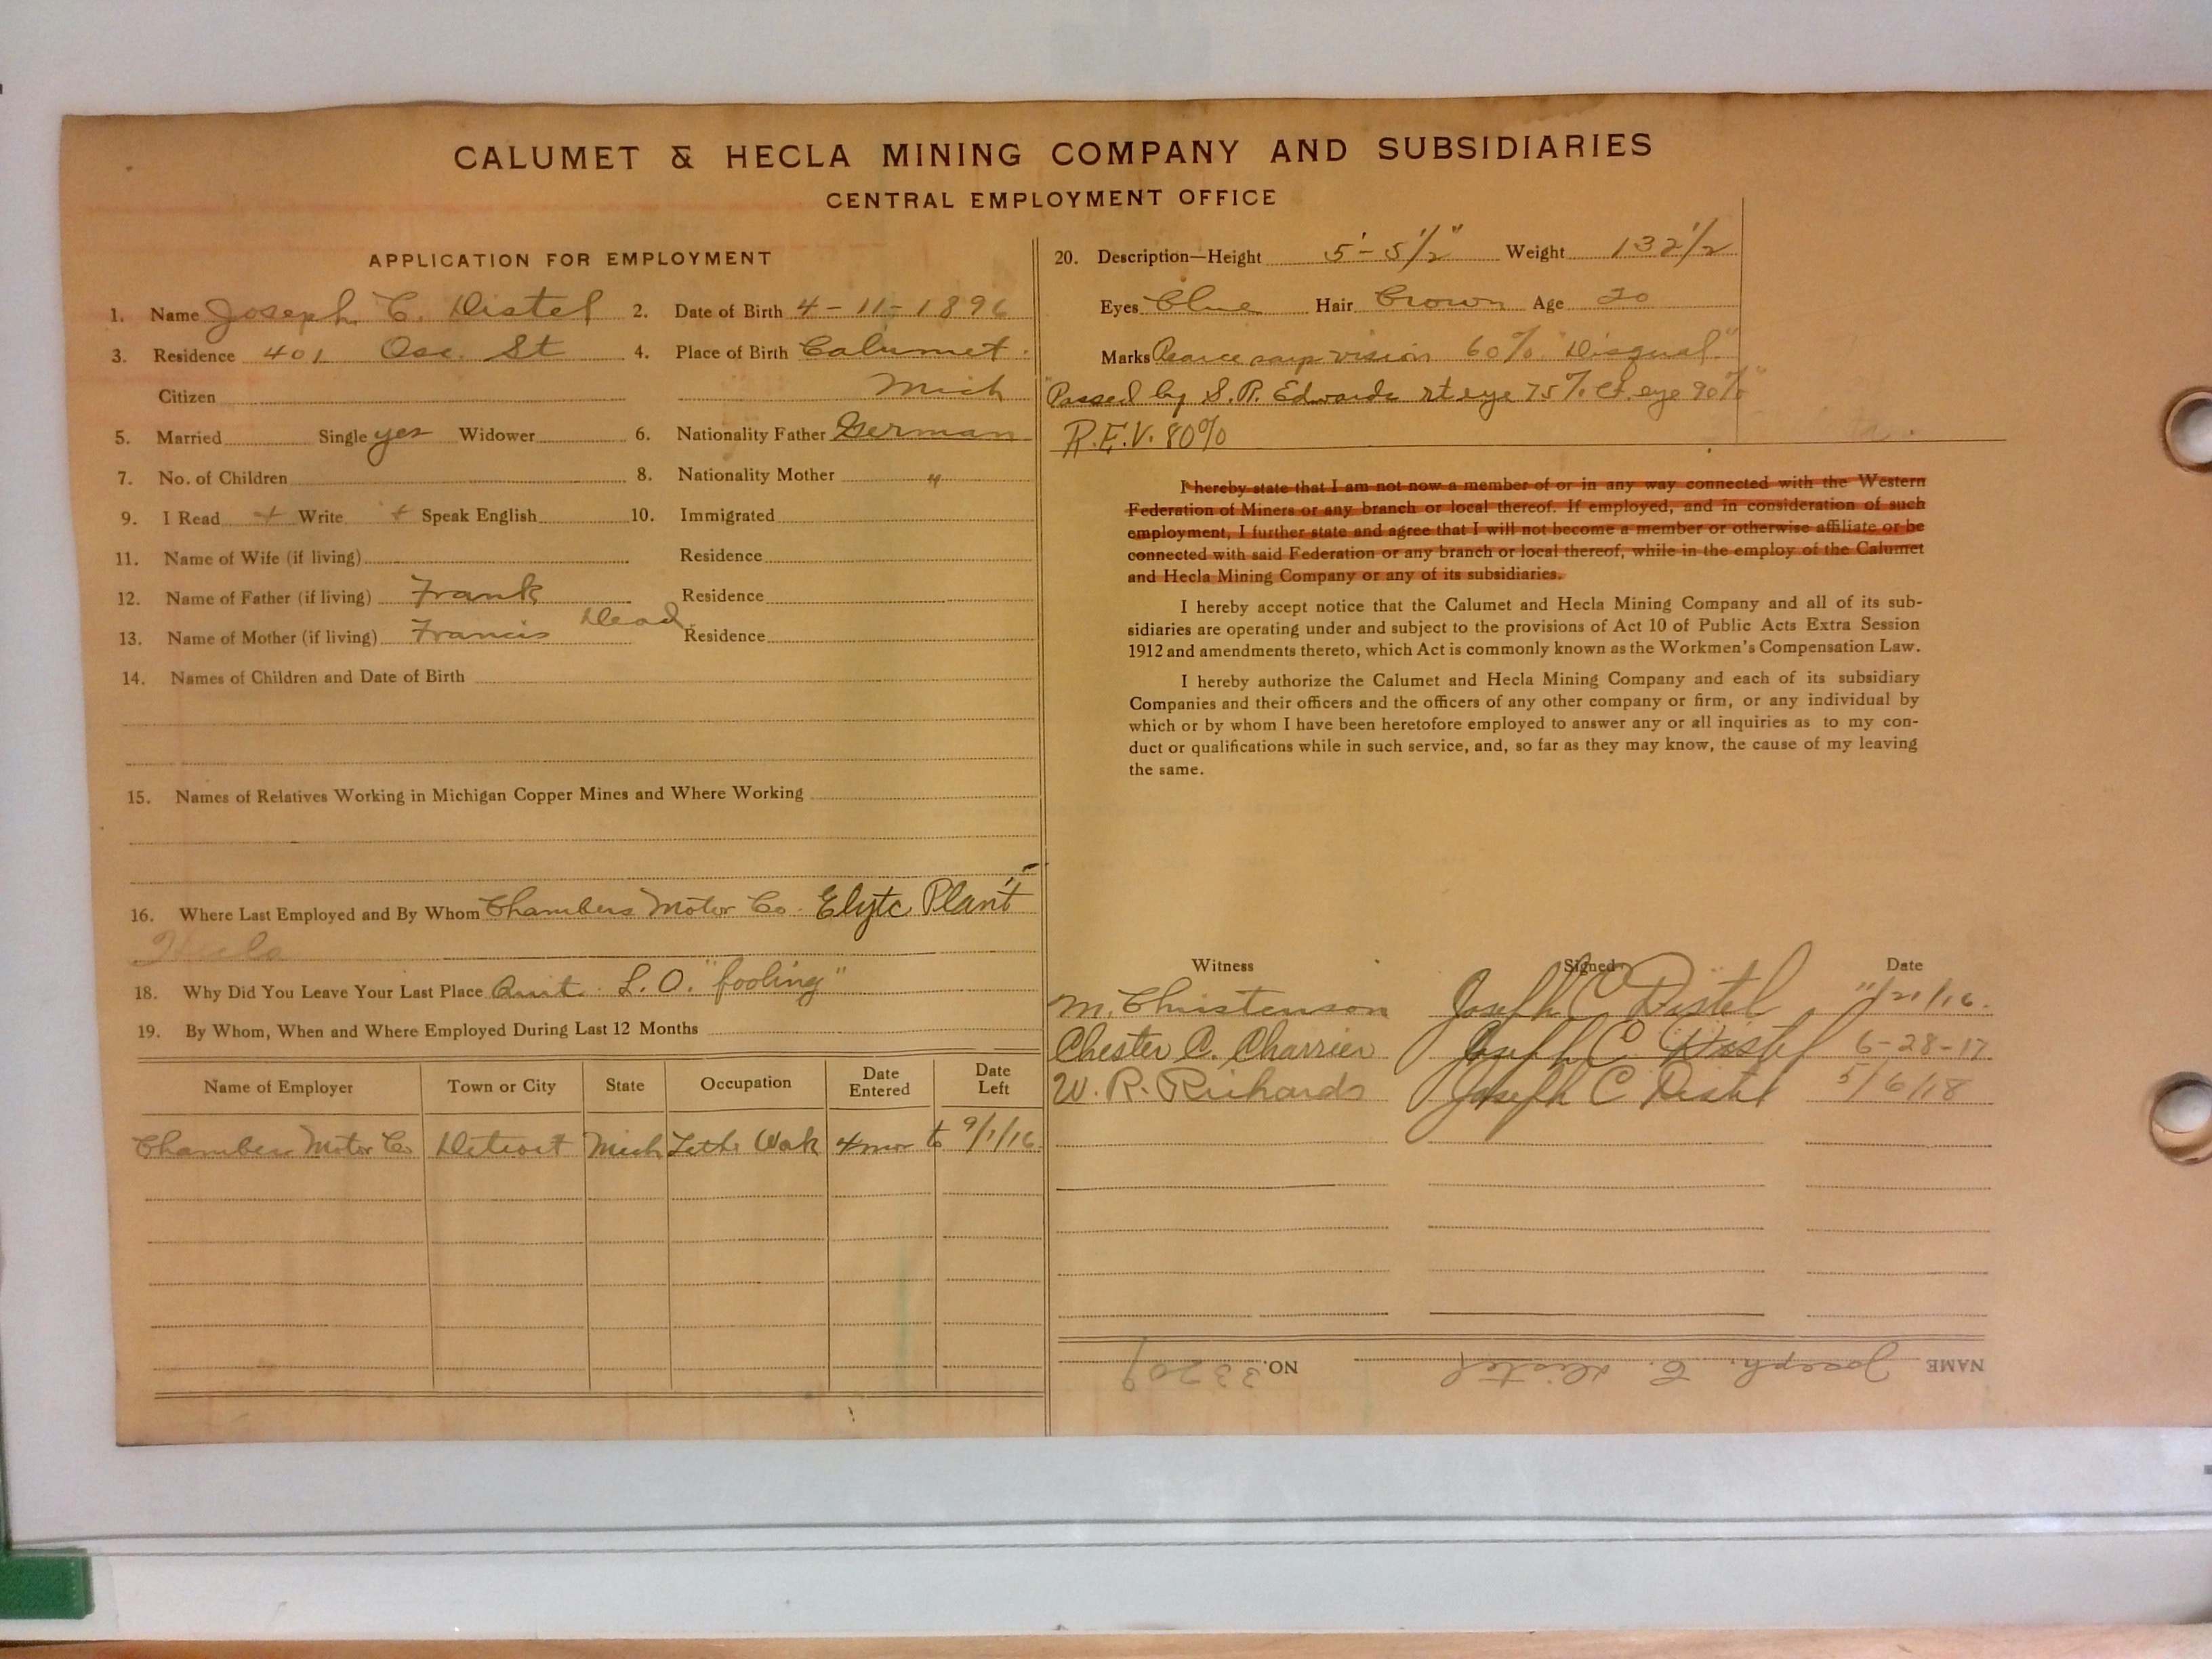 CALUMET & HECLA MINING COMPANY AND SUBSIDIARIES
CENTRAL EMPLOYMENT OFFICE
APPLICATION FOR EMPLOYMENT
1. Name Joseph C. Distel 2. Date of Birth 4-11-1896
3. Residence 401 Osc. St 4. Place of Birth Calumet
Citizen Mich
5. Married Single yes Widower 6. Nationality Father German
7. No. of Children 8. Nationality Mother "
9. I Read + Write + Speak English 10. Immigrated
11. Name of Wife (if living) Residence
12. Name of Father (if living) Frank Residence
13. Name of Mother (if living) Francis Dead Residence
14. Names of Children and Date of Birth
15. Names of Relatives Working in Michigan Copper Mines and Where Working
16. Where Last Employed and By Whom Chambers Motor Co. Elytc Plant
18. Why Did You Leave Your Last Place Quit. L.O. "fooling"
19. By Whom, When and Where Employed During Last 12 Months
Name of Employer Town or City State Occupation Date Entered Date Left
Chambers Motor Co Detroit Mich Lathe Work 4 mos to 9/1/16
20. Description—Height 5'-5½" Weight 132½
Eyes Blue Hair Brown Age 20
Marks vision 60% "Disqual."
"Passed by S.R. Edwards rt eye 75% Lf. eye 90%"
R.E.V. 80%
I hereby state that I am not now a member of or in any way connected with the Western
Federation of Miners or any branch or local thereof. If employed, and in consideration of such
employment, I further state and agree that I will not become a member or otherwise affiliate or be
connected with said Federation or any branch or local thereof, while in the employ of the Calumet
and Hecla Mining Company or any of its subsidiaries.
I hereby accept notice that the Calumet and Hecla Mining Company and all of its sub-
sidiaries are operating under and subject to the provisions of Act 10 of Public Acts Extra Session
1912 and amendments thereto, which Act is commonly known as the Workmen's Compensation Law.
I hereby authorize the Calumet and Hecla Mining Company and each of its subsidiary
Companies and their officers and the officers of any other company or firm, or any individual by
which or by whom I have been heretofore employed to answer any or all inquiries as to my con-
duct or qualifications while in such service, and, so far as they may know, the cause of my leaving
the same.
Witness Signed Date
M. Christenson Joseph C Distel 11/21/16.
Chester C. Charrier Joseph C. Distel 6-28-17
W. R. Richards Joseph C Distel 5/6/18
NAME Joseph C. Distel NO. 33209